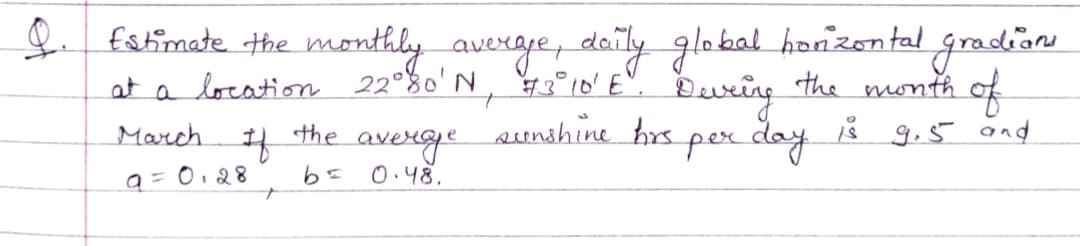 Q. Estimate the monthly average, daily global horizontal gradians
at a location 22°80'N, 73°10'E. During the month of
March If the average sunshine hrs per day is 9.5 and
a = 0.28, b = 0.48.